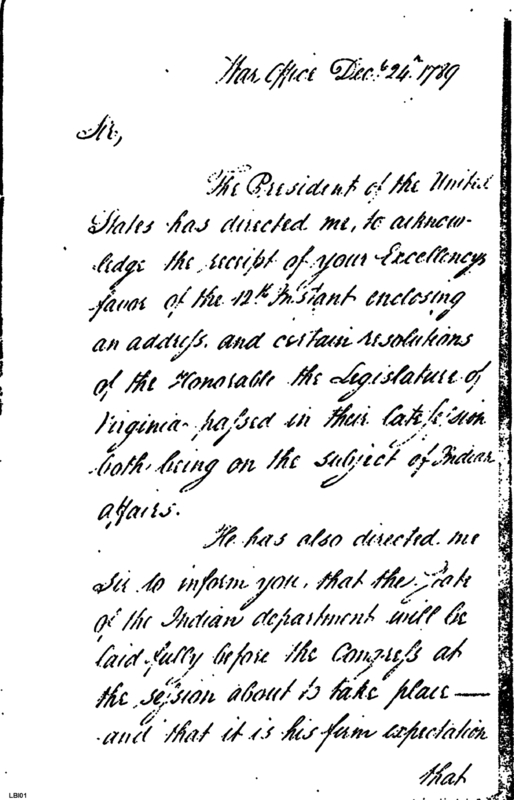 War Office Decr. 24th. 1789
Sir,
The President of the United
States has directed me, to acknow-
ledge the receipt of your Excellency's
favor of the 12th Instant enclosing
an address, and certain resolutions
of the Honorable the Legislature of
Virginia passed in their late session
both being on the subject of Indian
affairs.
He has also directed me
Sir to inform you, that the State
of the Indian department will be
laid fully before the Congress at
the session about to take place —
and that it is his firm expectation
that
LBI01